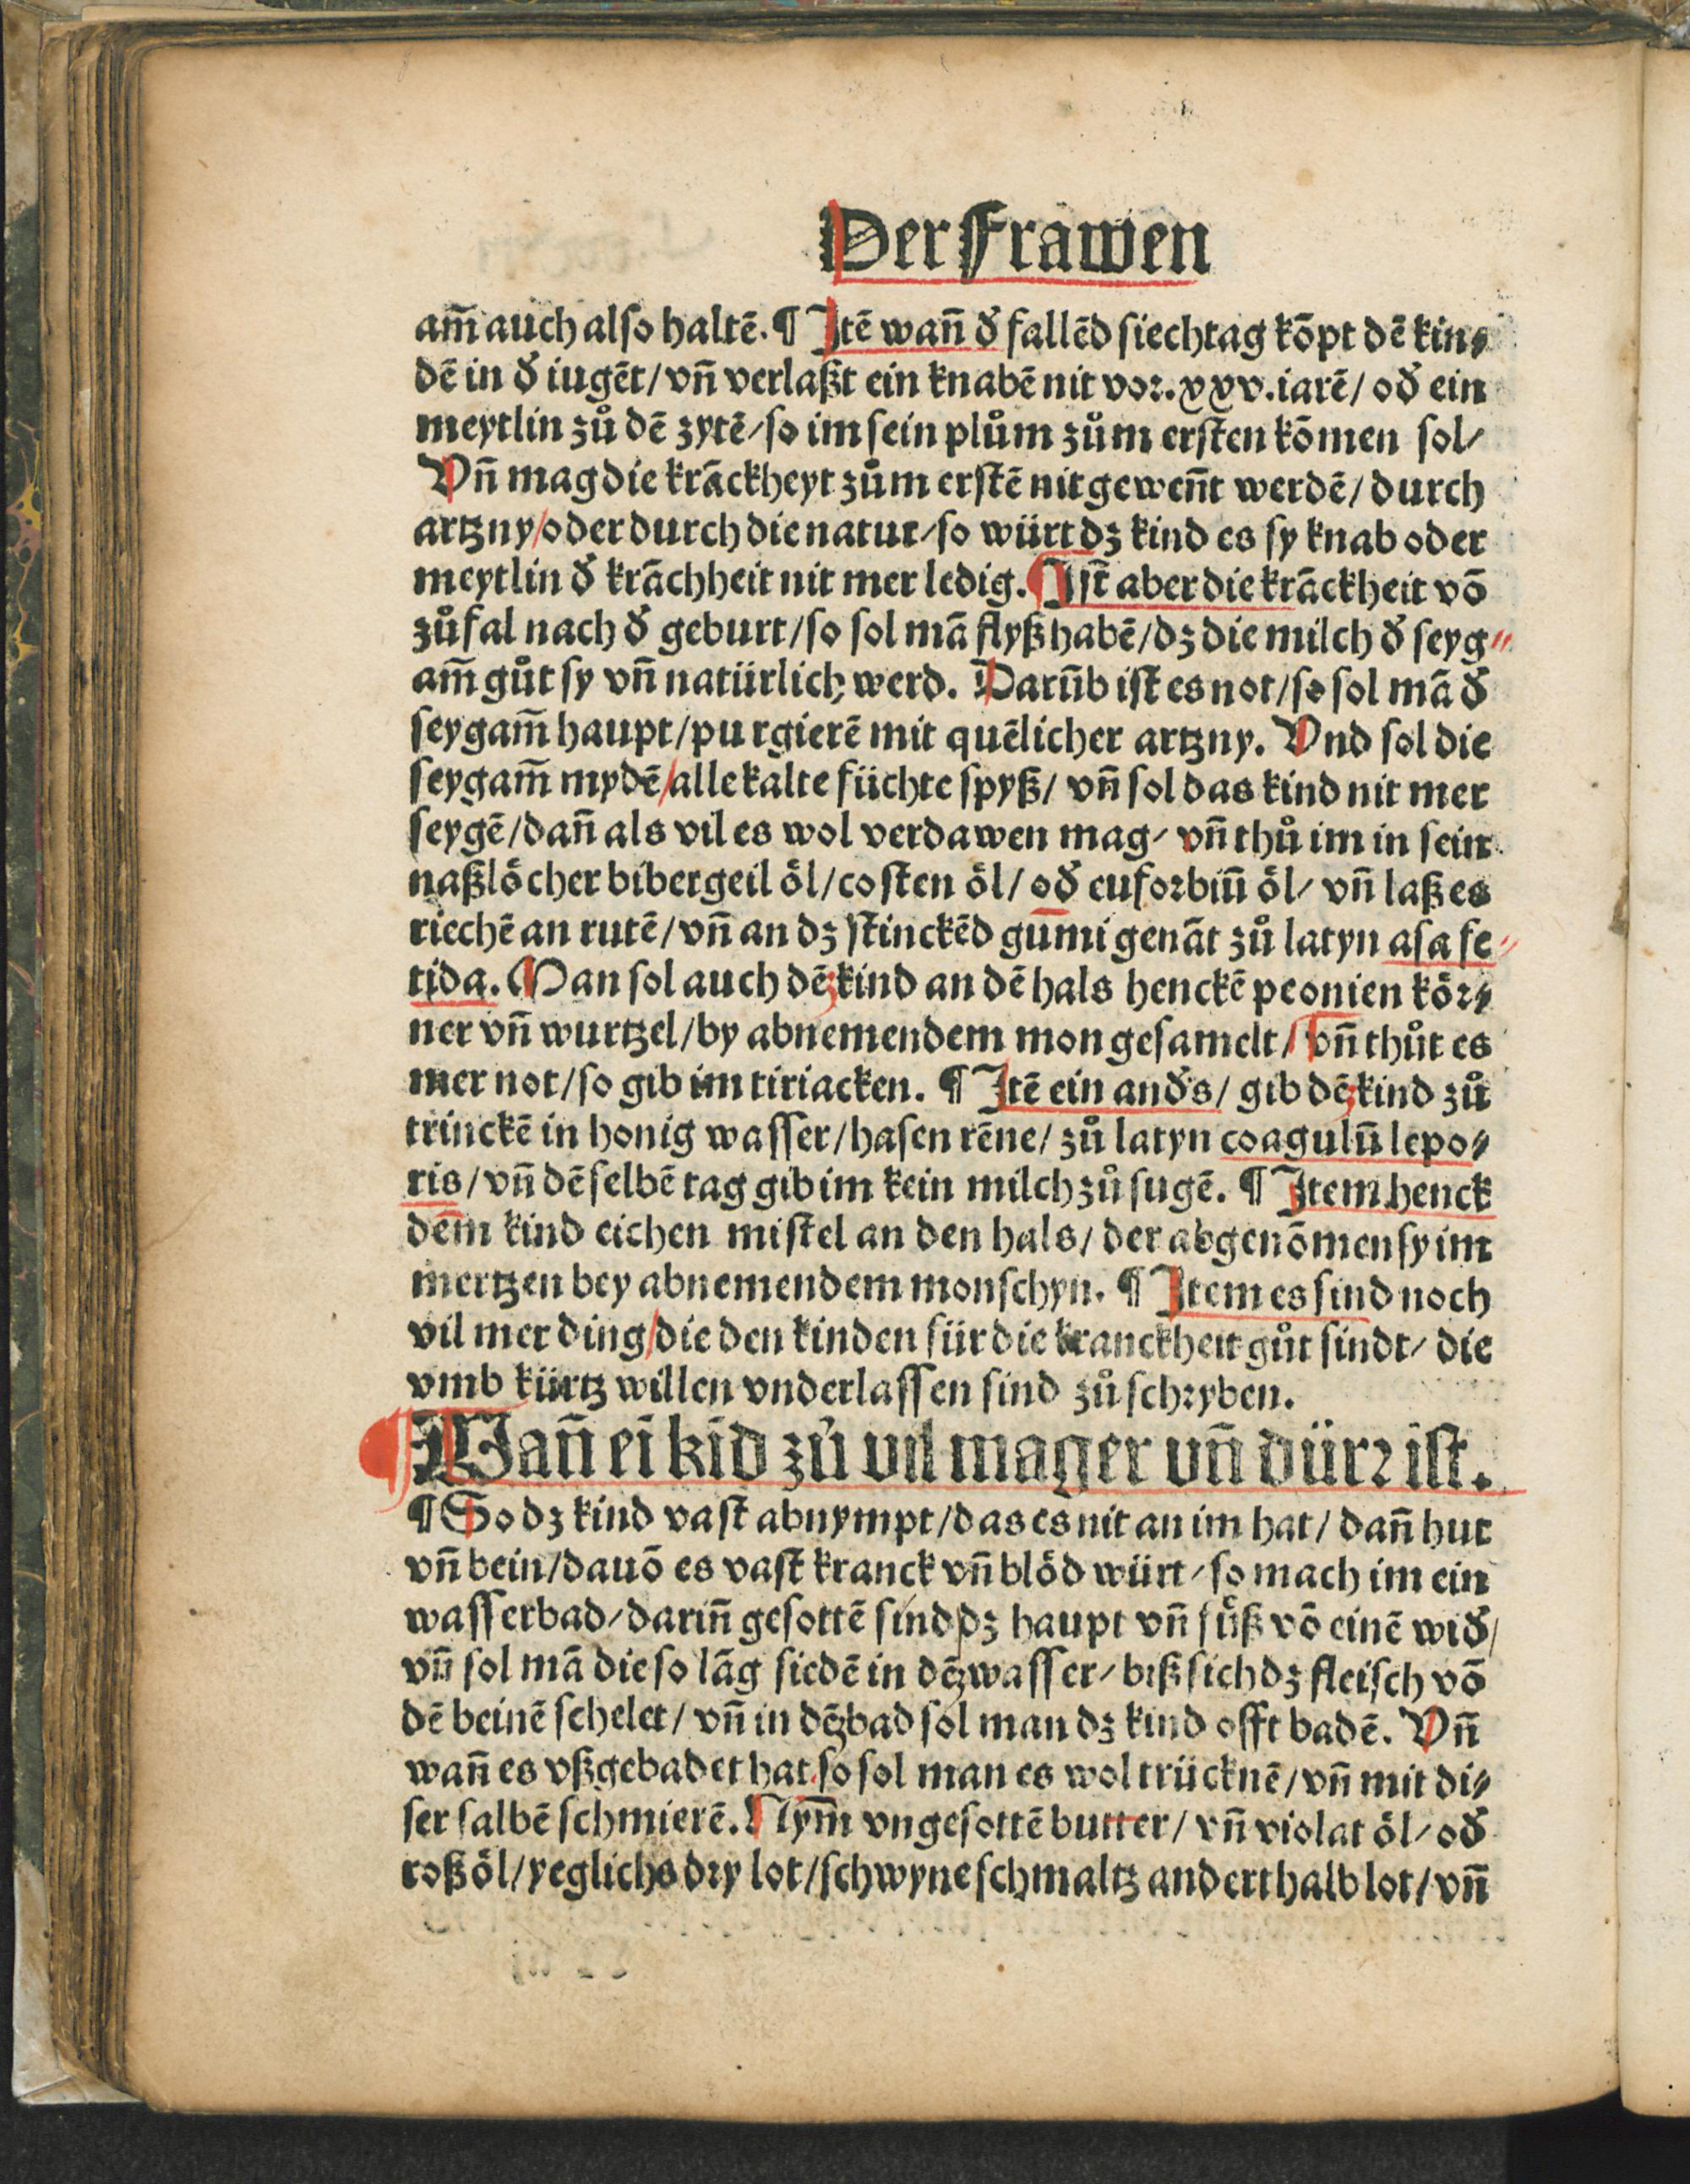 Der Frawen
am̄ auch also haltē. ¶ Itē wañ ð fallēd siechtag kōpt dē kin⸗
dē in ð iugēt/ vñ verlaßt ein knabē nit vor. xxv. iarē/ oð ein
meytlin zů dē zytē/ so im sein plům zům ersten kōmen sol/
Vñ mag die krāckheyt zům erstē nit geweñt werdē/ durch
artzny/ oder durch die natur/ so würt dz kind es sy knab oder
meytlin ð krāchheit nit mer ledig. ¶ Ist aber die krāckheit vō
zůfal nach ð geburt/ so sol mā flyß habē/ dz die milch ð seyg⸗
am̄ gůt sy vñ natürlich werd. Darūb ist es not/ so sol mā ð
seygam̄ haupt/ purgierē mit quēlicher artzny. Vnd sol die
seygam̄ mydē/ alle kalte füchte spyß/ vñ sol das kind nit mer
seygē/ dañ als vil es wol verdawen mag/ vñ thů im in sein
naßlöcher bibergeil öl/ costen öl/ oð euforbiū öl/ vñ laß es
riechē an rutē/ vñ an dz stinckēd gumi genāt zů latyn asa fe⸗
tida. Man sol auch dēz kind an dē hals henckē peonien kör⸗
ner vñ wurtzel/ by abnemendem mon gesamelt/ vñ thůt es
mer not/ so gib im tiriacken. ¶ Itē ein anðs/ gib dēz kind zů
trinckē in honig wasser/ hasen rēne/ zů latyn coagulū lepo⸗
ris/ vñ dēselbē tag gib im kein milch zů sugē. ¶ Item henck
dem kind eichen mistel an den hals/ der abgenōmen sy im
mertzen bey abnemendem monschyn. ¶ Item es sind noch
vil mer ding/ die den kinden für die kranckheit gůt sindt/ die
vmb kürtz willen vnderlassen sind zů schryben.
¶ Wañ eī kīd zů vil mager vñ dürr ist.
¶ So dz kind vast abnympt/ das es nit an im hat/ dañ hut
vñ bein/ dauō es vast kranck vñ blöd würt/ so mach im ein
wasserbad/ dariñ gesottē sind dz haupt vñ fůß vō einē wið/
vñ sol mā die so lāg siedē in dēz wasser/ biß sich dz fleisch vō
dē beinē schelet/ vñ in dēz bad sol man dz kind offt badē. Vñ
wañ es vßgebadet hat. so sol man es wol trücknē/ vñ mit di⸗
ser salbē schmierē. Nym̄ vngesottē butter/ vñ violat öl/ oð
roßöl/ yeglichs dry lot/ schwyne schmaltz anderthalb lot/ vñ